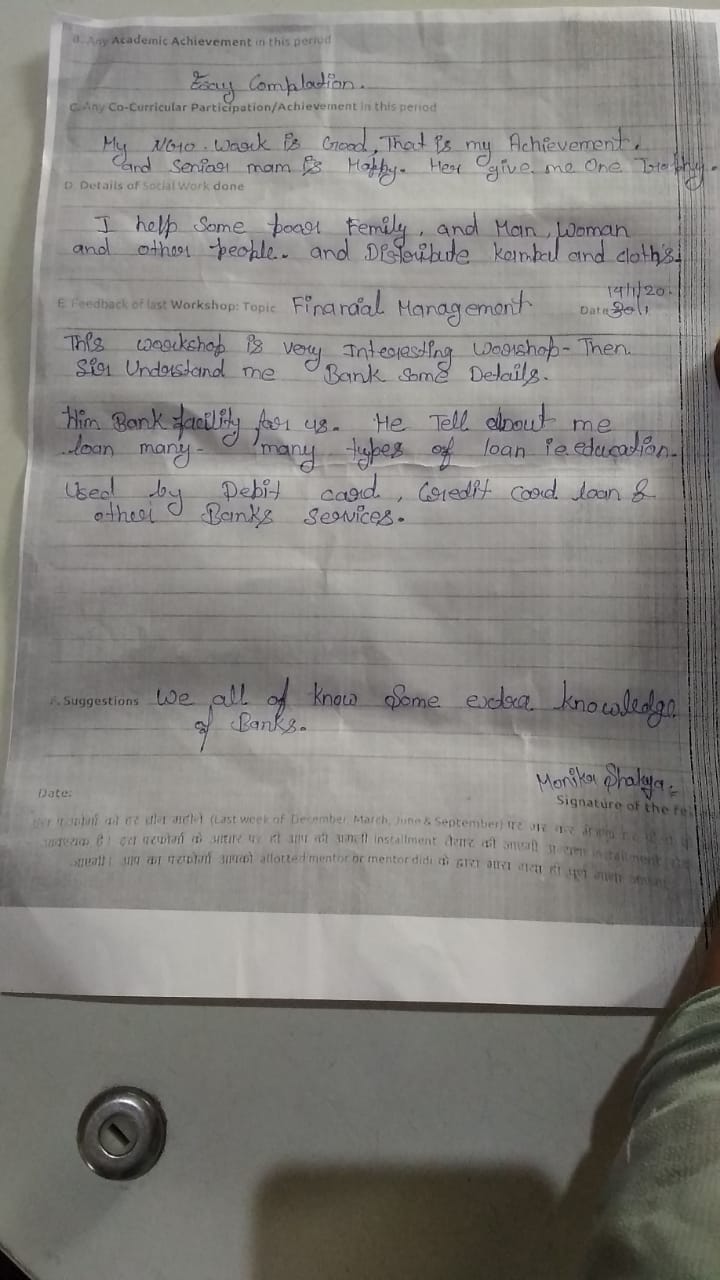 B. Any Academic Achievement in this period
Essay Complation.
C. Any Co-Curricular Participation/Achievement in this period
My NGO. Wask is Good, That is my Achievement.
and Senior mam is Happy. Her give me One Trophy.
D. Details of Social Work done
I help Some poor Femily, and Man, Woman
and other people. and Distribute kambal and cloth's.
E. Feedback of last Workshop: Topic Financial Management
19/1/20.
Date
This woorkshop is very Interesting Woorshop- Then.
Sir Understand me Bank Some Details.
Him Bank facility for us. He Tell about me
loan many- many types of loan ie. education.
Used by Debit card, Credit card loan &
other Banks Services.
F. Suggestions We all of know Some extra knowledge
of Banks.
Monika Shakya
Date:
Signature of the
(Last week of December, March, June & September) पर भर कर भेजना
आवश्यक है। इस परफोर्मा के आधार पर ही आप की अगली installment तैयार की जाएगी अन्यथा installment
जाएगी। आप का परफोर्मा आपको allotted mentor or mentor didi के द्वारा भरा गया ही पूर्ण माना जाएगा